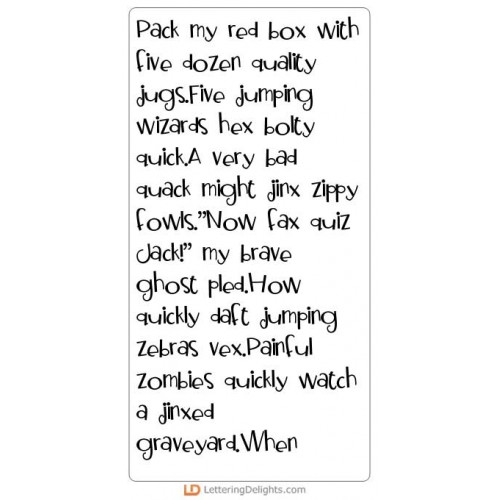 Pack my red box with
five dozen quality
jugs.Five jumping
wizards hex bolty
quick.A very bad
quack might jinx zippy
fowls.”Now fax quiz
Jack!” my brave
ghost pled.How
quickly daft jumping
zebras vex.Painful
zombies quickly watch
a jinxed
graveyard.When
LD LetteringDelights.com